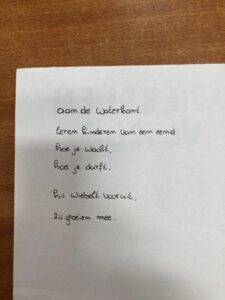 aan de waterkant
leren kinderen van een eend
hoe je wacht,
hoe je durft.
hij wiebelt vooruit,
zij groeien mee.